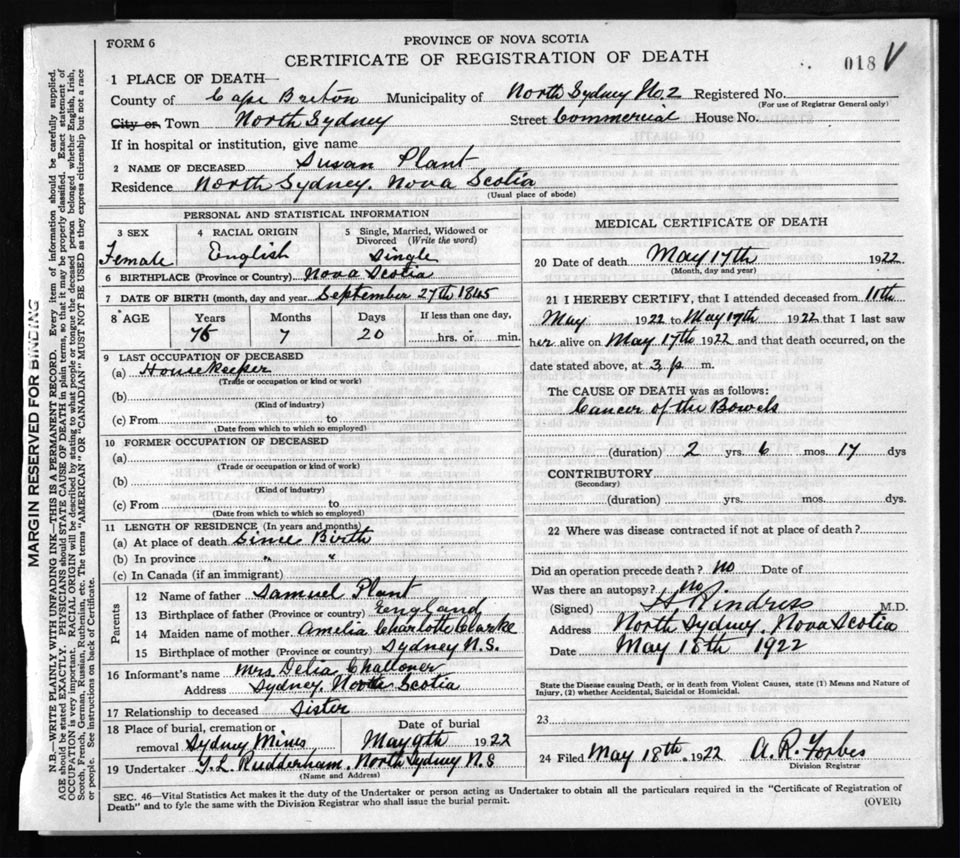 FORM 6
PROVINCE OF NOVA SCOTIA
CERTIFICATE OF REGISTRATION OF DEATH
018 V
1 PLACE OF DEATH—
County of Cape Breton Municipality of North Sydney No. 2 Registered No.
(For use of Registrar General only)
City or Town North Sydney Street Commercial House No.
If in hospital or institution, give name
2 NAME OF DECEASED Susan Plant
Residence North Sydney. Nova Scotia
(Usual place of abode)
PERSONAL AND STATISTICAL INFORMATION
3 SEX Female
4 RACIAL ORIGIN English
5 Single, Married, Widowed or Divorced (Write the word) Single
6 BIRTHPLACE (Province or Country) Nova Scotia
7 DATE OF BIRTH (month, day and year) September 27th 1845
8 AGE Years Months Days If less than one day,
76 7 20 hrs. or min.
9 LAST OCCUPATION OF DECEASED
(a) Housekeeper
(Trade or occupation or kind or work)
(b)
(Kind of industry)
(c) From to
(Date from which to which so employed)
10 FORMER OCCUPATION OF DECEASED
(a)
(Trade or occupation or kind of work)
(b)
(Kind of industry)
(c) From to
(Date from which to which so employed)
11 LENGTH OF RESIDENCE (In years and months)
(a) At place of death Since Birth
(b) In province " "
(c) In Canada (if an immigrant)
Parents
12 Name of father Samuel Plant
13 Birthplace of father (Province or country) England
14 Maiden name of mother. Amelia Charlotte Clarke
15 Birthplace of mother (Province or country) Sydney N.S.
16 Informant's name Mrs. Delia Challoner
Address Sydney. Nova Scotia
17 Relationship to deceased Sister
18 Place of burial, cremation or removal Sydney Mines
Date of burial May 19th 1922
19 Undertaker T. L. Rudderham. North Sydney N.S
(Name and Address)
MEDICAL CERTIFICATE OF DEATH
20 Date of death May 17th 1922
(Month, day and year)
21 I HEREBY CERTIFY, that I attended deceased from 11th
May 1922 to May 17th 1922 that I last saw
her alive on May 17th 1922 and that death occurred, on the
date stated above, at 3 p m.
The CAUSE OF DEATH was as follows:
Cancer of the Bowels
(duration) 2 yrs. 6 mos. 17 dys
CONTRIBUTORY
(Secondary)
(duration) yrs. mos. dys.
22 Where was disease contracted if not at place of death?
Did an operation precede death? no Date of
Was there an autopsy? no
(Signed) M.D.
Address North Sydney. Nova Scotia
Date May 18th 1922
State the Disease causing Death, or in death from Violent Causes, state (1) Means and Nature of
Injury, (2) whether Accidental, Suicidal or Homicidal.
23
24 Filed May 18th 1922 A. R. Forbes
Division Registrar
SEC. 46—Vital Statistics Act makes it the duty of the Undertaker or person acting as Undertaker to obtain all the particulars required in the "Certificate of Registration of
Death" and to fyle the same with the Division Registrar who shall issue the burial permit.
(OVER)
MARGIN RESERVED FOR BINDING
N.B.—WRITE PLAINLY WITH UNFADING INK—THIS IS A PERMANENT RECORD. Every item of information should be carefully supplied.
AGE should be stated EXACTLY. PHYSICIANS should STATE CAUSE OF DEATH in plain terms, so that it may be properly classified. Exact statement of
OCCUPATION is very important. RACIAL ORIGIN will be described by stating to what people or tongue the deceased person belonged whether English, Irish,
Scotch, French, German, Russian, Ruthenian, etc. The terms "AMERICAN" OR "CANADIAN" MUST NOT BE USED as they express citizenship but not a race
or people. See instructions on back of Certificate.